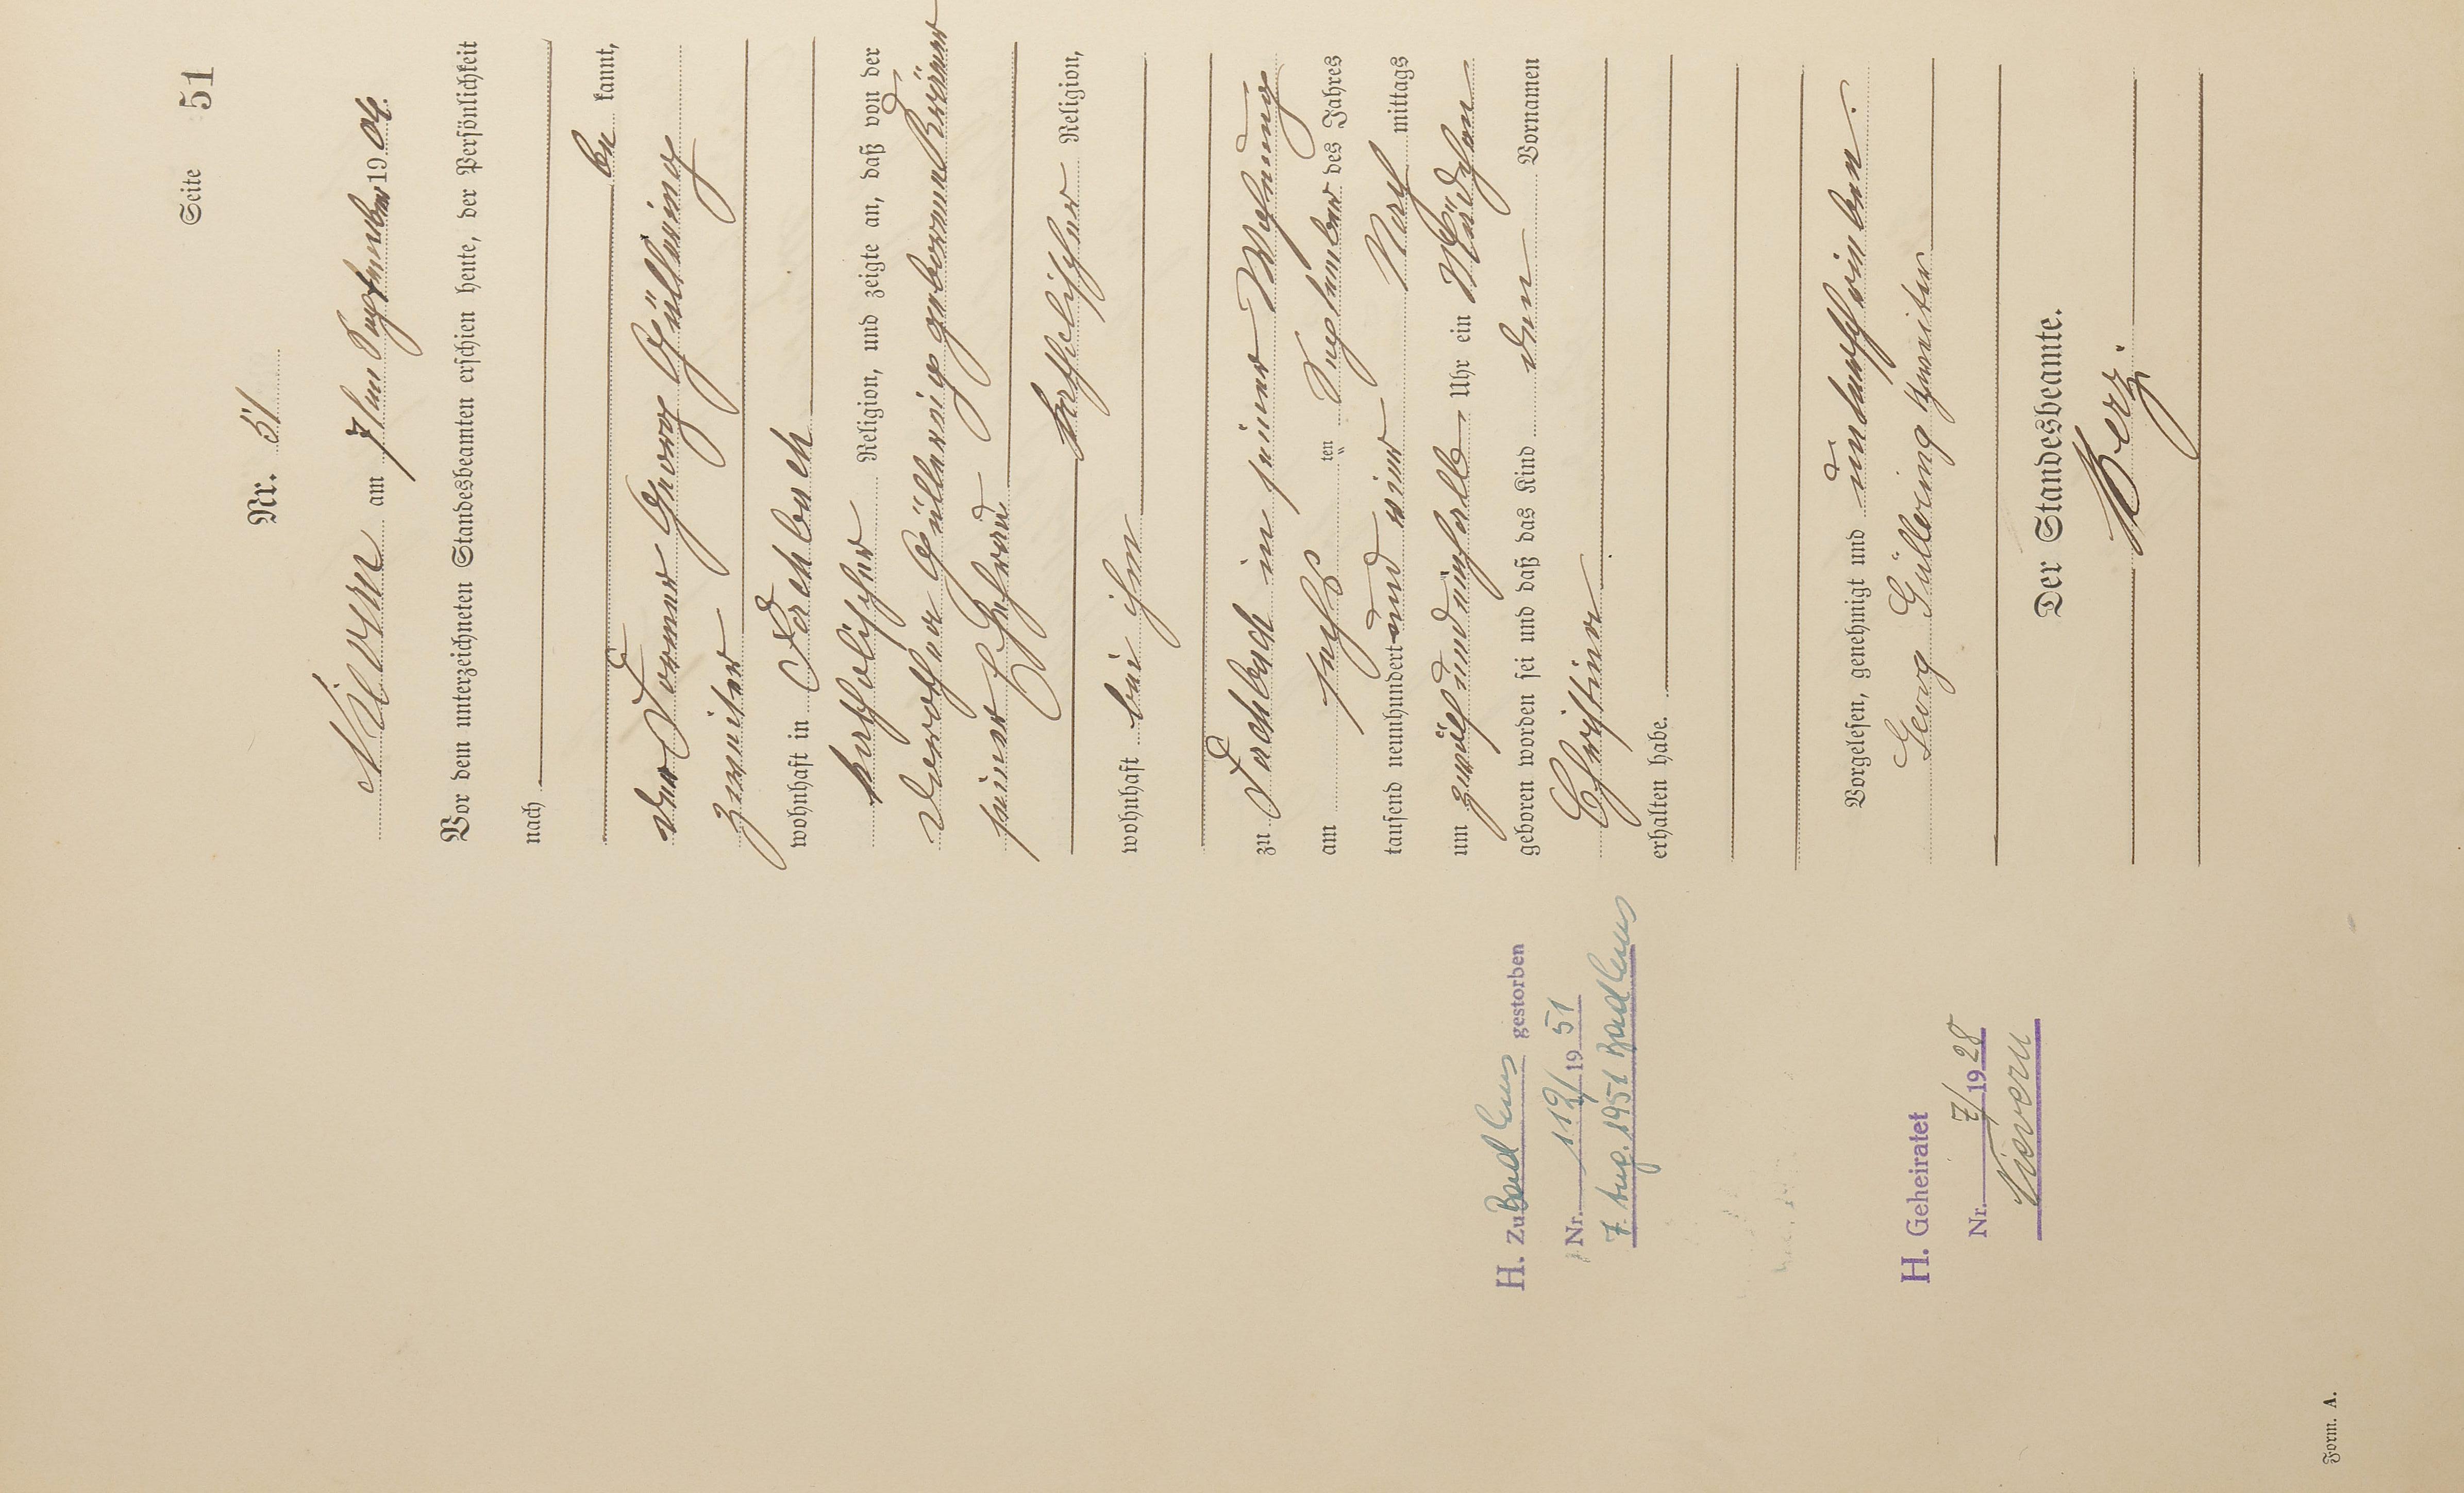 Seite 51
Nr. 51
Nievern am 7ten September 1904.
Vor dem unterzeichneten Standesbeamten erschien heute, der Persönlichkeit
nach
be kannt,
der Former Georg Güllering
zweiter
wohnhaft in Fachbach
katholischer Religion, und zeigte an, daß von der
Dorothea Güllering geborene
seiner Ehefrau
katholischer Religion,
wohnhaft bei ihm
zu Fachbach in seiner Wohnung
am sechs ten September des Jahres
tausend neunhundert und vier Nach mittags
um zwölf und einhalb Uhr ein Mädchen
geboren worden sei und daß das Kind den Vornamen
Christine
erhalten habe.
Vorgelesen, genehmigt und unterschrieben.
Georg Güllering zweiter
Der Standesbeamte.
Herz.
H. Zu Bad Ems gestorben
Nr. 112/1951
7. Aug. 1951 Bad Ems
H. Geheiratet
Nr. 7/1928
Nievern
Form. A.